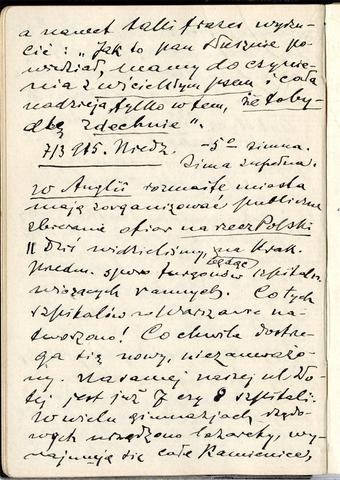 a nawet takie frazes wyrzu-
cić: "Jak to pan słusznie po-
wiedział, mamy do czynie-
nia z wściekłym psem i cała
nadzieja tylko w tem, że to by-
dlę zdechnie".
7/3 915. Niedz. -5° zimna.
Zima zupełna.
W Anglii rozmaite miasta
mają zorganizować publiczne
zbieranie ofiar na rzecz Polski
|| Dziś widzieliśmy, będąc na Krak.
Przedm. sporo furgonów szpitaln.
wiozących rannych. Co tych
szpitalów w Warszawie na-
tworzono! Co chwila dostrze-
ga się nowy, niezauważo-
ny. Na samej naszej ul.
jest już 7 czy 8 szpitali.
W wielu gimnazjach rządo-
wych urządzono lazarety, wy-
najmują się całe kamienice,